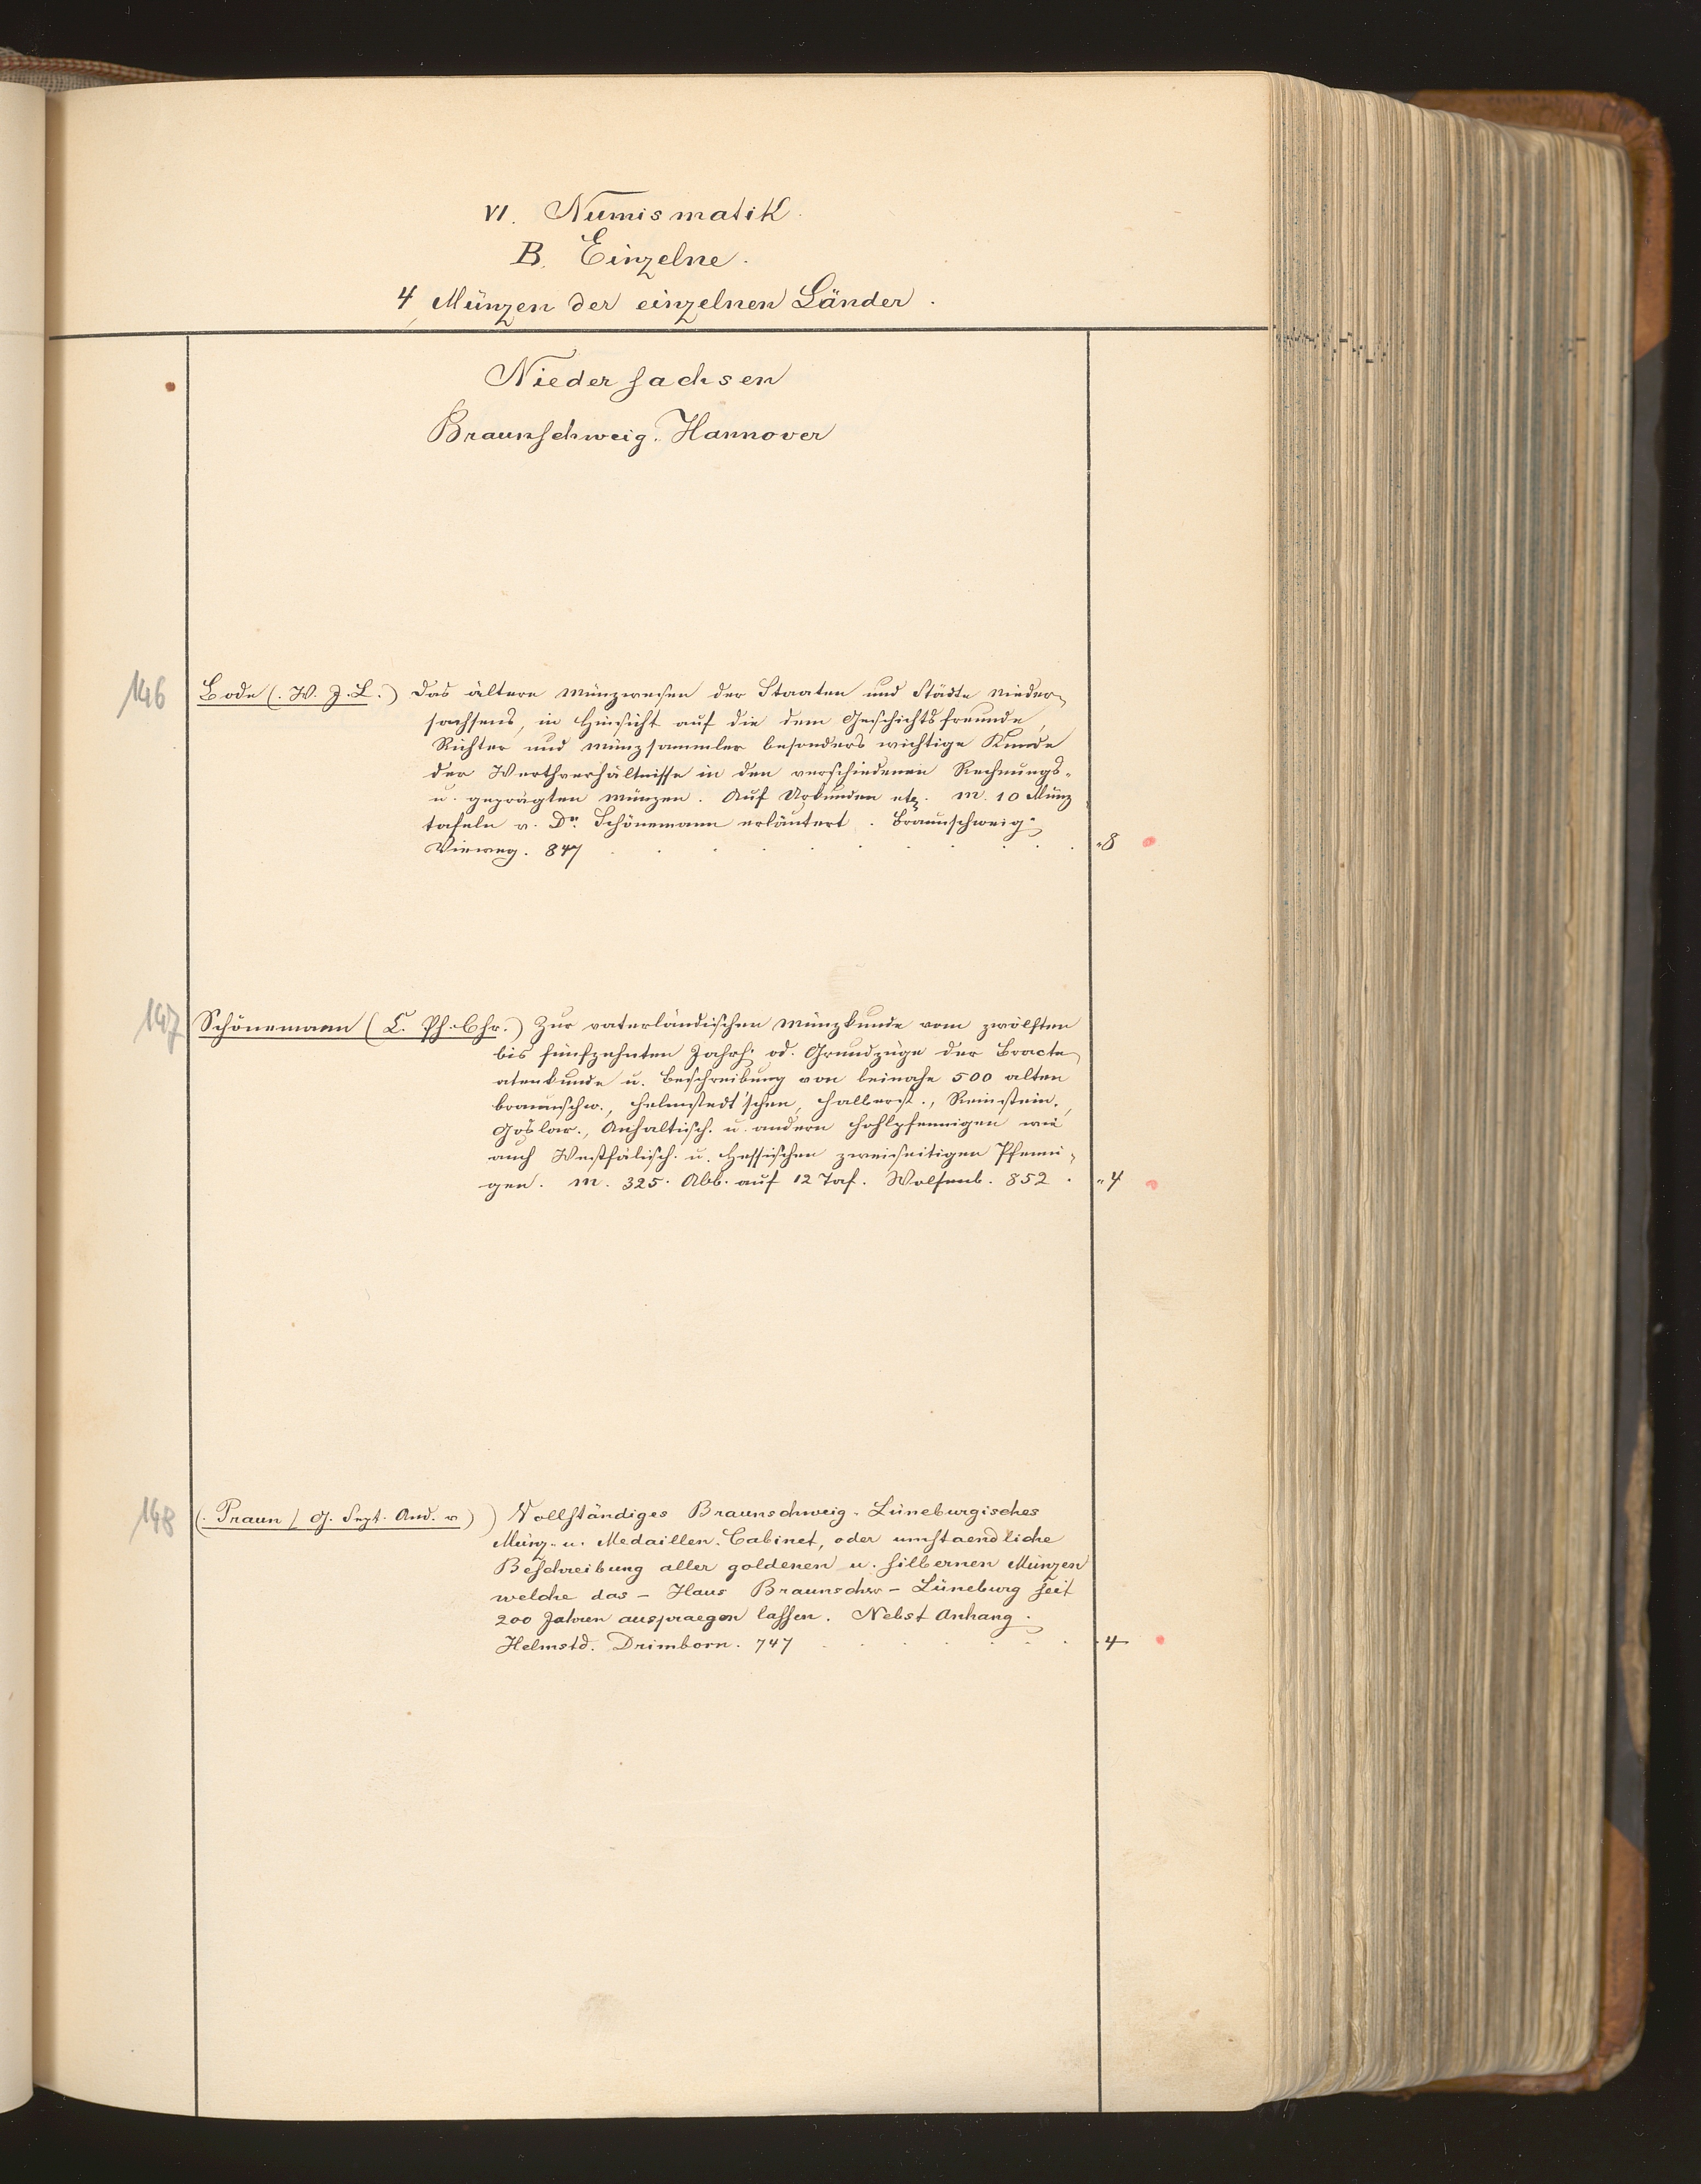 VI. Numismatik.
B. Einzelne.
4, Münzen der einzelnen Länder.
Niedersachsen
Braunschweig-Hannover
146
Bode (. W. J. L.) Das ältere Münzwesen der Staaten und Städte Nieder-
sachsens, in Hinsicht auf die dem Geschichtsfreunde,
Richter und Münzsammler besonders wichtige Kunde
der Werthverhältnisse in den verschiedenen Rechnungs-
u. geprägten Münzen. Auf Urkunden etz. M. 10 Münz
tafeln v. Dr. Schönemann erläutert. Braunschweig.
Vieweg. 847 . . . . . . . . . "8
147
Schönemann (C. Ph. Chr.) Zur vaterländischen Münzkunde vom zwölften
bis fünfzehnten Jahrh. od. Grundzüge der Bracte-
atenkunde u. Beschreibung von beinahe 500 alten
braunschw., Helmstedt'schen, Halberst., Reinstein.,
Goslar., Anhaltisch. u. andern Hohlpfennigen wie
auch Westfälisch. u. Hessischen zweiseitigen Pfenni-
gen. M. 325. Abb. auf 12 Taf. Wolfenb. 852 . "4
148
(. Praun / G. Sept. And. v) ) Vollständiges Braunschweig-Lüneburgisches
Münz- u. Medaillen-Cabinet, oder umstaendliche
Beschreibung aller goldenen u. silbernen Münzen
welche das – Haus Braunschw – Lüneburg seit
200 Jahren auspraegen lassen. Nebst Anhang.
Helmstd. Drimborn. 747 . . . . . . . "4